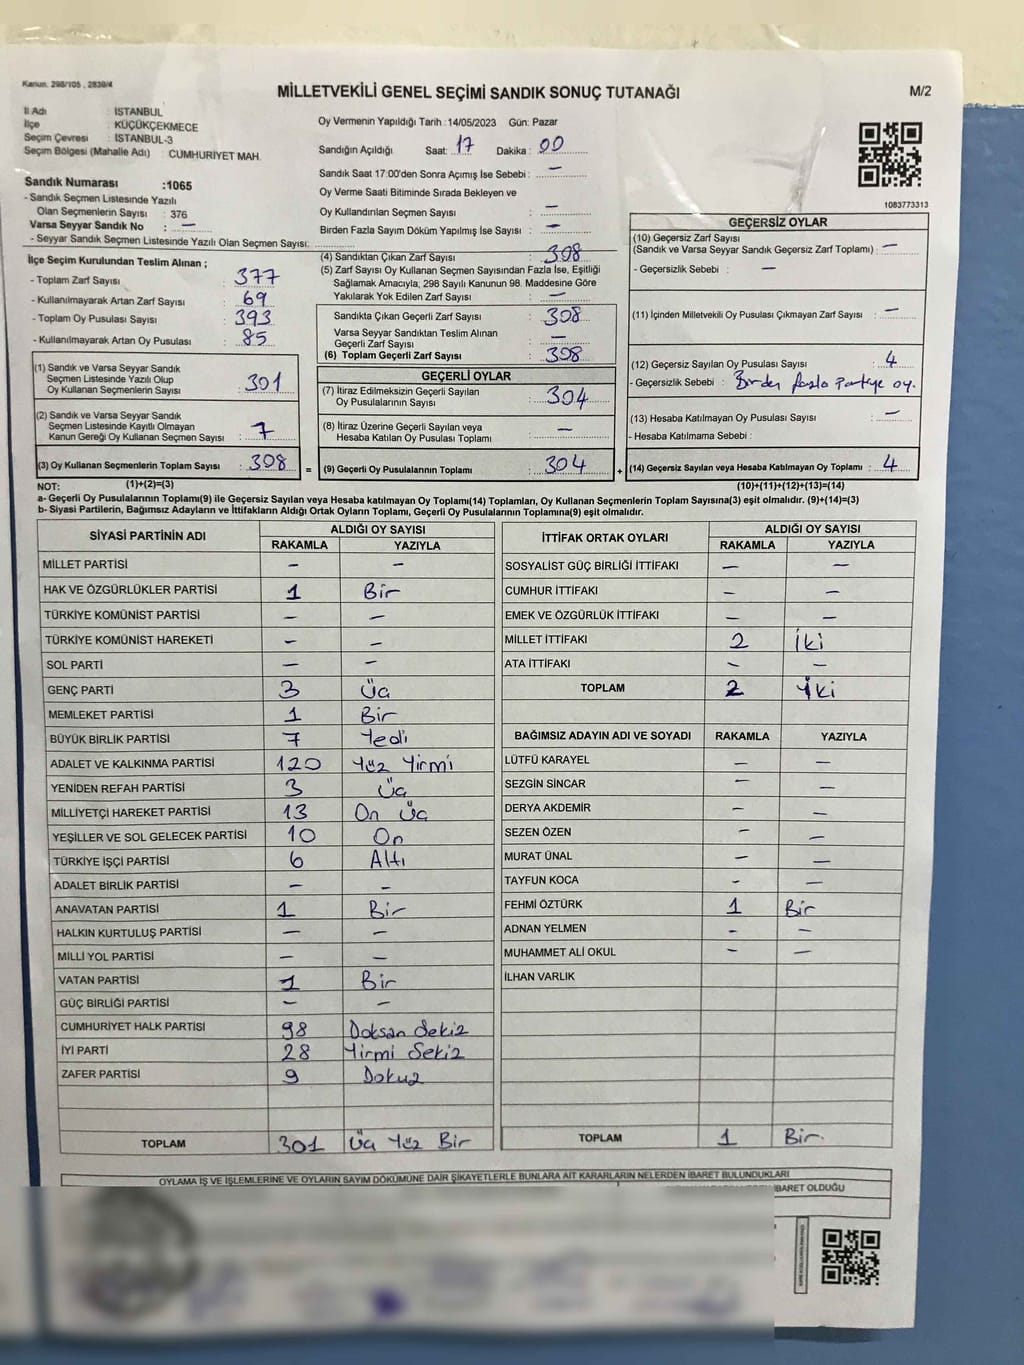 Kanun. 298/105 , 2839/4
MİLLETVEKİLİ GENEL SEÇİMİ SANDIK SONUÇ TUTANAĞI
M/2
İl Adı : İSTANBUL
İlçe : KÜÇÜKÇEKMECE
Seçim Çevresi : İSTANBUL-3
Seçim Bölgesi (Mahalle Adı) : CUMHURİYET MAH.
Sandık Numarası :1065
- Sandık Seçmen Listesinde Yazılı
Olan Seçmenlerin Sayısı : 376
Varsa Seyyar Sandık No : —
- Seyyar Sandık Seçmen Listesinde Yazılı Olan Seçmen Sayısı:
Oy Vermenin Yapıldığı Tarih :14/05/2023 Gün: Pazar
Sandığın Açıldığı Saat: 17 Dakika : 00
Sandık Saat 17:00'den Sonra Açımış İse Sebebi : —
Oy Verme Saati Bitiminde Sırada Bekleyen ve
Oy Kullandırılan Seçmen Sayısı : —
Birden Fazla Sayım Döküm Yapılmış İse Sayısı : —
1083773313
İlçe Seçim Kurulundan Teslim Alınan ;
- Toplam Zarf Sayısı : 377
- Kullanılmayarak Artan Zarf Sayısı : 69
- Toplam Oy Pusulası Sayısı : 393
- Kullanılmayarak Artan Oy Pusulası : 85
(1) Sandık ve Varsa Seyyar Sandık
Seçmen Listesinde Yazılı Olup
Oy Kullanan Seçmenlerin Sayısı : 301
(2) Sandık ve Varsa Seyyar Sandık
Seçmen Listesinde Kayıtlı Olmayan
Kanun Gereği Oy Kullanan Seçmen Sayısı : 7
(3) Oy Kullanan Seçmenlerin Toplam Sayısı : 308
(4) Sandıktan Çıkan Zarf Sayısı : 308
(5) Zarf Sayısı Oy Kullanan Seçmen Sayısından Fazla İse, Eşitliği
Sağlamak Amacıyla, 298 Sayılı Kanunun 98. Maddesine Göre
Yakılarak Yok Edilen Zarf Sayısı : —
Sandıkta Çıkan Geçerli Zarf Sayısı : 308
Varsa Seyyar Sandıktan Teslim Alınan
Geçerli Zarf Sayısı : —
(6) Toplam Geçerli Zarf Sayısı : 308
GEÇERLİ OYLAR
(7) İtiraz Edilmeksizin Geçerli Sayılan
Oy Pusulalarının Sayısı : 304
(8) İtiraz Üzerine Geçerli Sayılan veya
Hesaba Katılan Oy Pusulası Toplamı : —
= (9) Geçerli Oy Pusulalarının Toplamı : 304
GEÇERSİZ OYLAR
(10) Geçersiz Zarf Sayısı
(Sandık ve Varsa Seyyar Sandık Geçersiz Zarf Toplamı) : —
- Geçersizlik Sebebi : —
(11) İçinden Milletvekili Oy Pusulası Çıkmayan Zarf Sayısı : —
(12) Geçersiz Sayılan Oy Pusulası Sayısı : 4
- Geçersizlik Sebebi : Birden fazla Partiye oy.
(13) Hesaba Katılmayan Oy Pusulası Sayısı : —
- Hesaba Katılmama Sebebi :
+ (14) Geçersiz Sayılan veya Hesaba Katılmayan Oy Toplamı : 4
NOT: (1)+(2)=(3) (10)+(11)+(12)+(13)=(14)
a- Geçerli Oy Pusulalarının Toplamı(9) ile Geçersiz Sayılan veya Hesaba katılmayan Oy Toplamı(14) Toplamları, Oy Kullanan Seçmenlerin Toplam Sayısına(3) eşit olmalıdır. (9)+(14)=(3)
b- Siyasi Partilerin, Bağımsız Adayların ve İttifakların Aldığı Ortak Oyların Toplamı, Geçerli Oy Pusulalarının Toplamına(9) eşit olmalıdır.
SİYASİ PARTİNİN ADI ALDIĞI OY SAYISI
RAKAMLA YAZIYLA
MİLLET PARTİSİ — —
HAK VE ÖZGÜRLÜKLER PARTİSİ 1 Bir
TÜRKİYE KOMÜNİST PARTİSİ — —
TÜRKİYE KOMÜNİST HAREKETİ — —
SOL PARTİ — —
GENÇ PARTİ 3 Üç
MEMLEKET PARTİSİ 1 Bir
BÜYÜK BİRLİK PARTİSİ 7 Yedi
ADALET VE KALKINMA PARTİSİ 120 Yüz Yirmi
YENİDEN REFAH PARTİSİ 3 Üç
MİLLİYETÇİ HAREKET PARTİSİ 13 On Üç
YEŞİLLER VE SOL GELECEK PARTİSİ 10 On
TÜRKİYE İŞÇİ PARTİSİ 6 Altı
ADALET BİRLİK PARTİSİ — —
ANAVATAN PARTİSİ 1 Bir
HALKIN KURTULUŞ PARTİSİ — —
MİLLİ YOL PARTİSİ — —
VATAN PARTİSİ 1 Bir
GÜÇ BİRLİĞİ PARTİSİ — —
CUMHURİYET HALK PARTİSİ 98 Doksan Sekiz
İYİ PARTİ 28 Yirmi Sekiz
ZAFER PARTİSİ 9 Dokuz
TOPLAM 301 Üç Yüz Bir
İTTİFAK ORTAK OYLARI ALDIĞI OY SAYISI
RAKAMLA YAZIYLA
SOSYALİST GÜÇ BİRLİĞİ İTTİFAKI — —
CUMHUR İTTİFAKI — —
EMEK VE ÖZGÜRLÜK İTTİFAKI — —
MİLLET İTTİFAKI 2 İki
ATA İTTİFAKI — —
TOPLAM 2 İki
BAĞIMSIZ ADAYIN ADI VE SOYADI RAKAMLA YAZIYLA
LÜTFÜ KARAYEL — —
SEZGİN SİNCAR — —
DERYA AKDEMİR — —
SEZEN ÖZEN — —
MURAT ÜNAL — —
TAYFUN KOCA — —
FEHMİ ÖZTÜRK 1 Bir
ADNAN YELMEN — —
MUHAMMET ALİ OKUL — —
İLHAN VARLIK
TOPLAM 1 Bir.
OYLAMA İŞ VE İŞLEMLERİNE VE OYLARIN SAYIM DÖKÜMÜNE DAİR ŞİKAYETLERLE BUNLARA AİT KARARLARIN NELERDEN İBARET BULUNDUKLARI
İBARET OLDUĞU